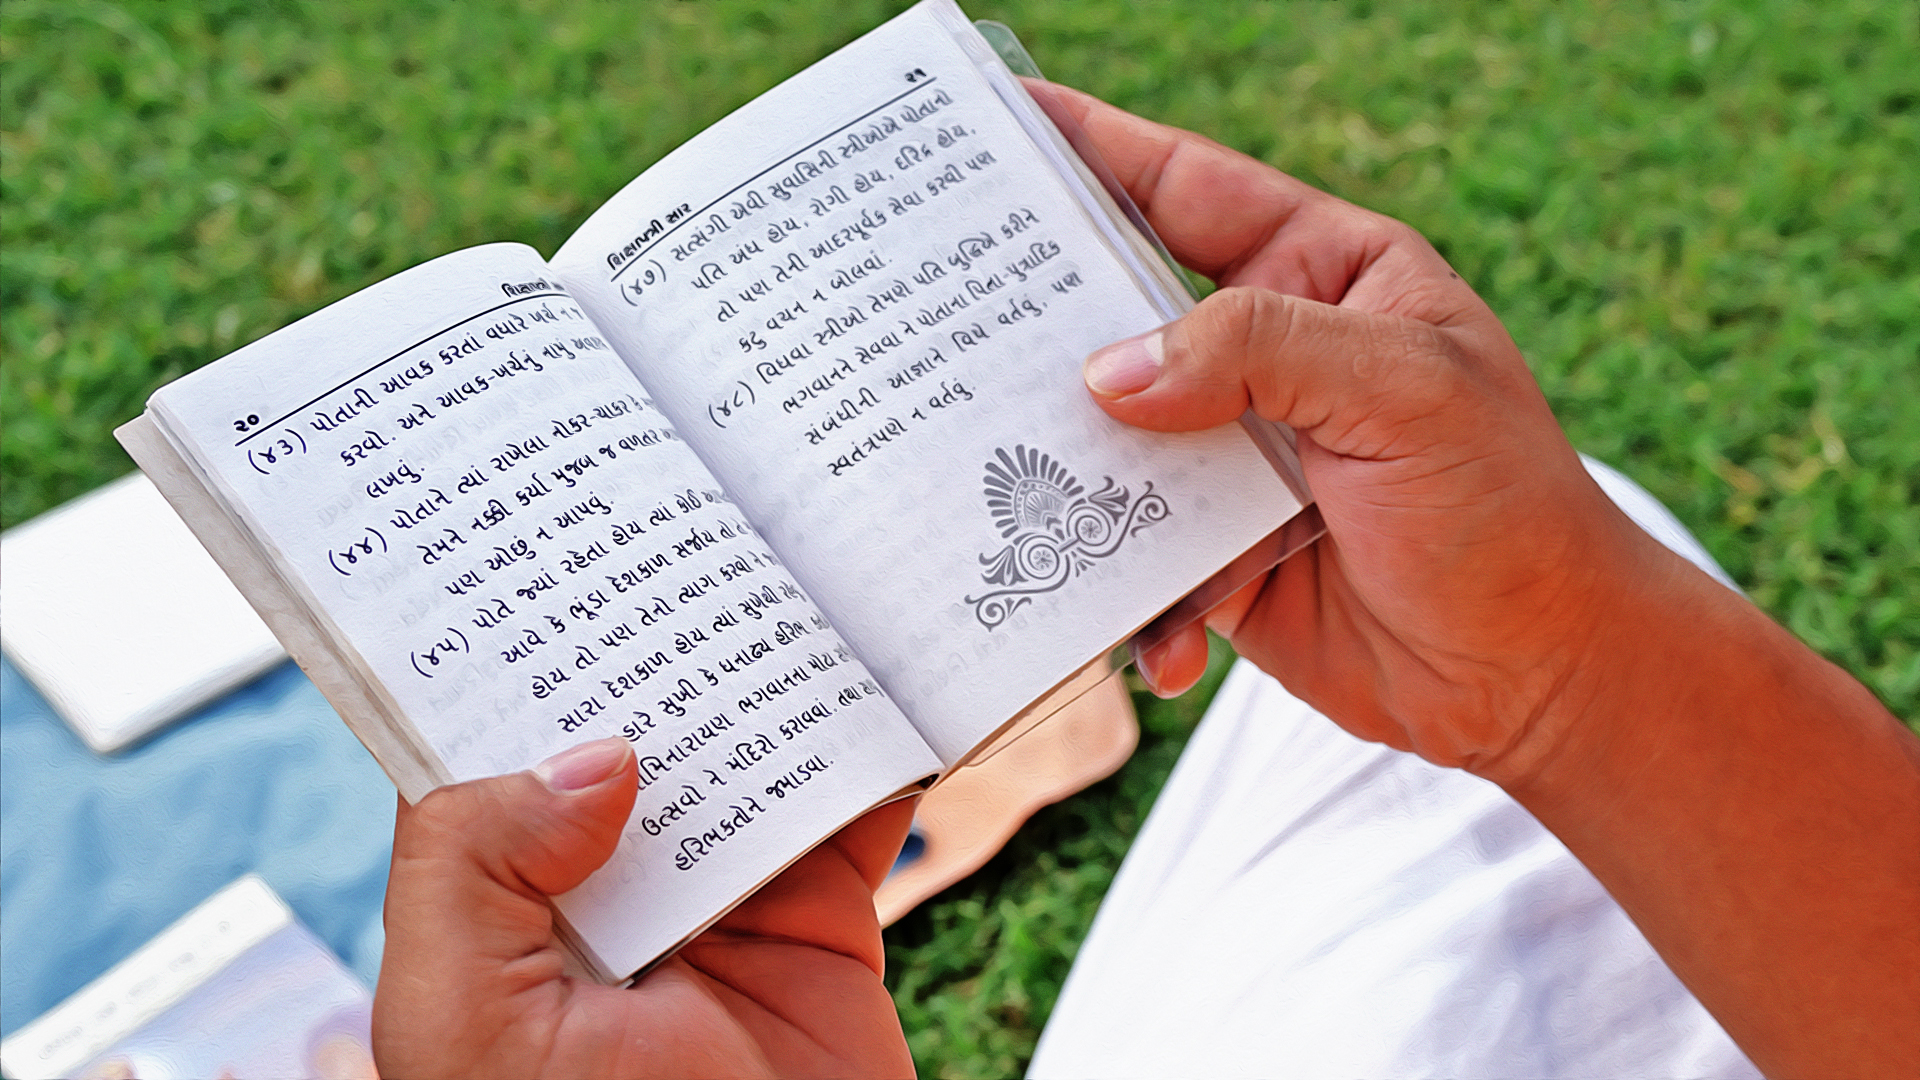 ૨૦
શિક્ષાપત્રી
(૪૩) પોતાની આવક કરતાં વધારે ખર્ચ ન
કરવો. અને આવક-ખર્ચનું નામું
લખવું.
(૪૪) પોતાને ત્યાં રાખેલા નોકર-ચાકર કે
તેમને નક્કી કર્યા મુજબ જ વળતર
પણ ઓછું ન આપવું.
(૪૫) પોતે જ્યાં રહેતા હોય ત્યાં કોઈ
આવે કે ભૂંડા દેશકાળ સર્જાય તો
હોય તો પણ તેનો ત્યાગ કરવો ને
સારા દેશકાળ હોય ત્યાં સુખેથી
સુખી કે ધનાઢ્ય હરિભ
ભગવાનના મોટા
ઉત્સવો ને મંદિરો કરાવવાં. તથા
હરિભક્તોને જમાડવા.
શિક્ષાપત્રી સાર
૨૧
(૪૭) સત્સંગી એવી સુવાસિની સ્ત્રીઓએ પોતાનો
પતિ અંધ હોય, રોગી હોય, દરિદ્ર હોય,
તો પણ તેની આદરપૂર્વક સેવા કરવી પણ
કટુ વચન ન બોલવાં.
(૪૮) વિધવા સ્ત્રીઓ તેમણે પતિ બુદ્ધિએ કરીને
ભગવાનને સેવવા ને પોતાના પિતા-પુત્રાદિક
સંબંધીની આજ્ઞાને વિષે વર્તવું, પણ
સ્વતંત્રપણે ન વર્તવું.